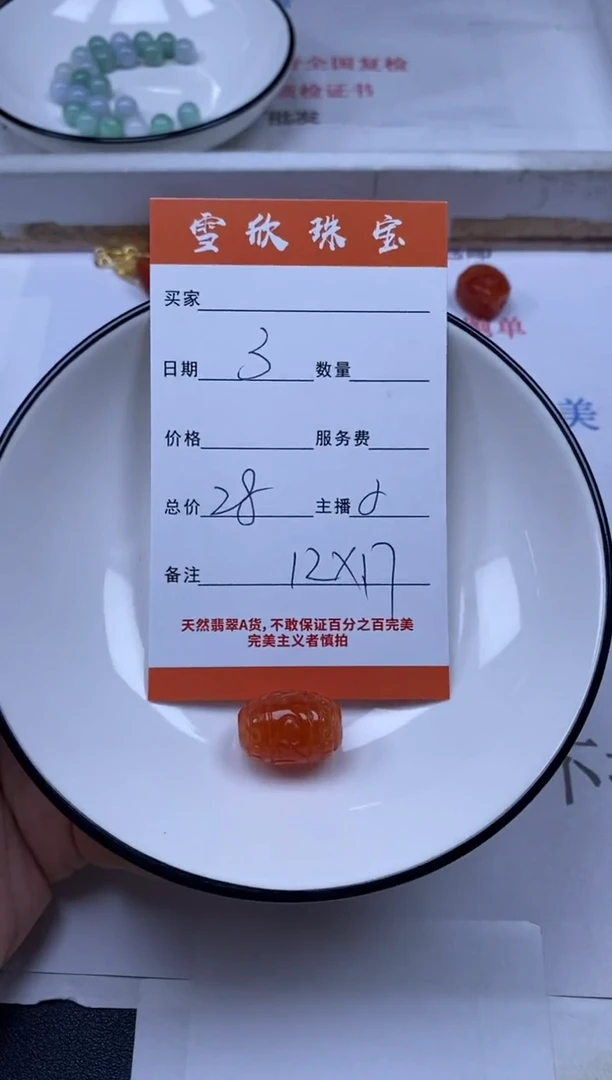 全国复检
质检证书
批发
雪欣珠宝
单
买家
美
日期 3 数量
价格 服务费
总价 28 主播
备注 12X17
天然翡翠A货,不敢保证百分之百完美
完美主义者慎拍
不